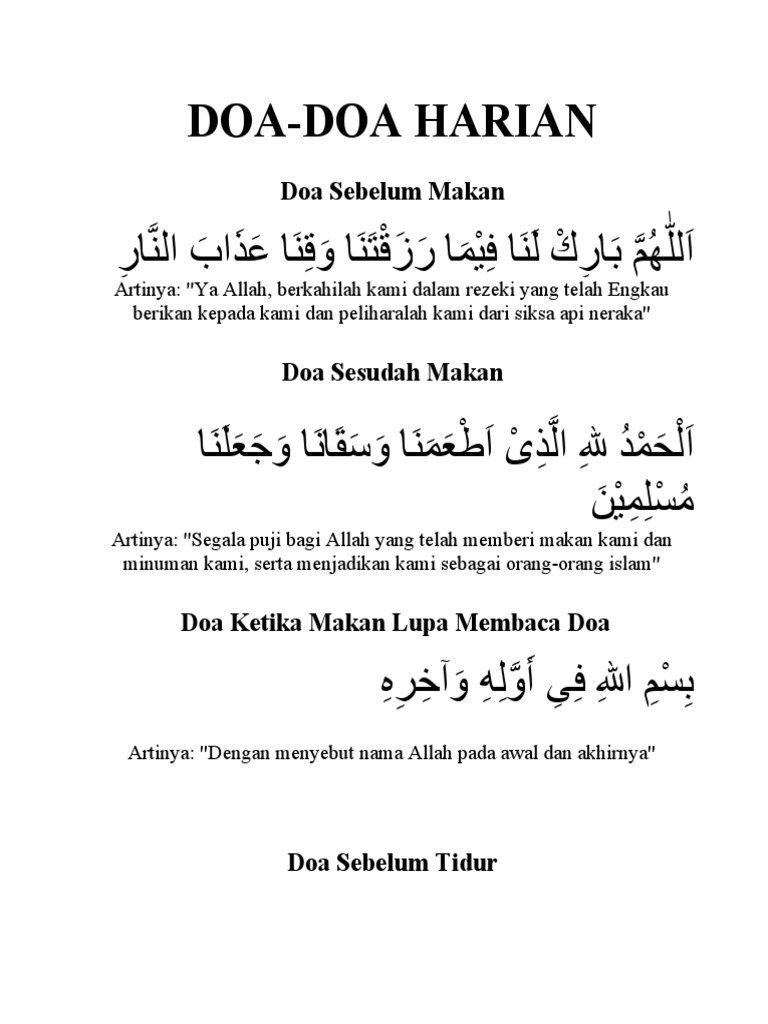 DOA-DOA HARIAN
Doa Sebelum Makan
اَللّٰهُمَّ بَارِكْ لَنَا فِيْمَا رَزَقْتَنَا وَقِنَا عَذَابَ النَّارِ
Artinya: "Ya Allah, berkahilah kami dalam rezeki yang telah Engkau
berikan kepada kami dan peliharalah kami dari siksa api neraka"
Doa Sesudah Makan
اَلْحَمْدُ ِللهِ الَّذِىْ اَطْعَمَنَا وَسَقَانَا وَجَعَلَنَا
مُسْلِمِيْنَ
Artinya: "Segala puji bagi Allah yang telah memberi makan kami dan
minuman kami, serta menjadikan kami sebagai orang-orang islam"
Doa Ketika Makan Lupa Membaca Doa
بِسْمِ اللهِ فِىِ أَوَّلِهِ وَآخِرِهِ
Artinya: "Dengan menyebut nama Allah pada awal dan akhirnya"
Doa Sebelum Tidur